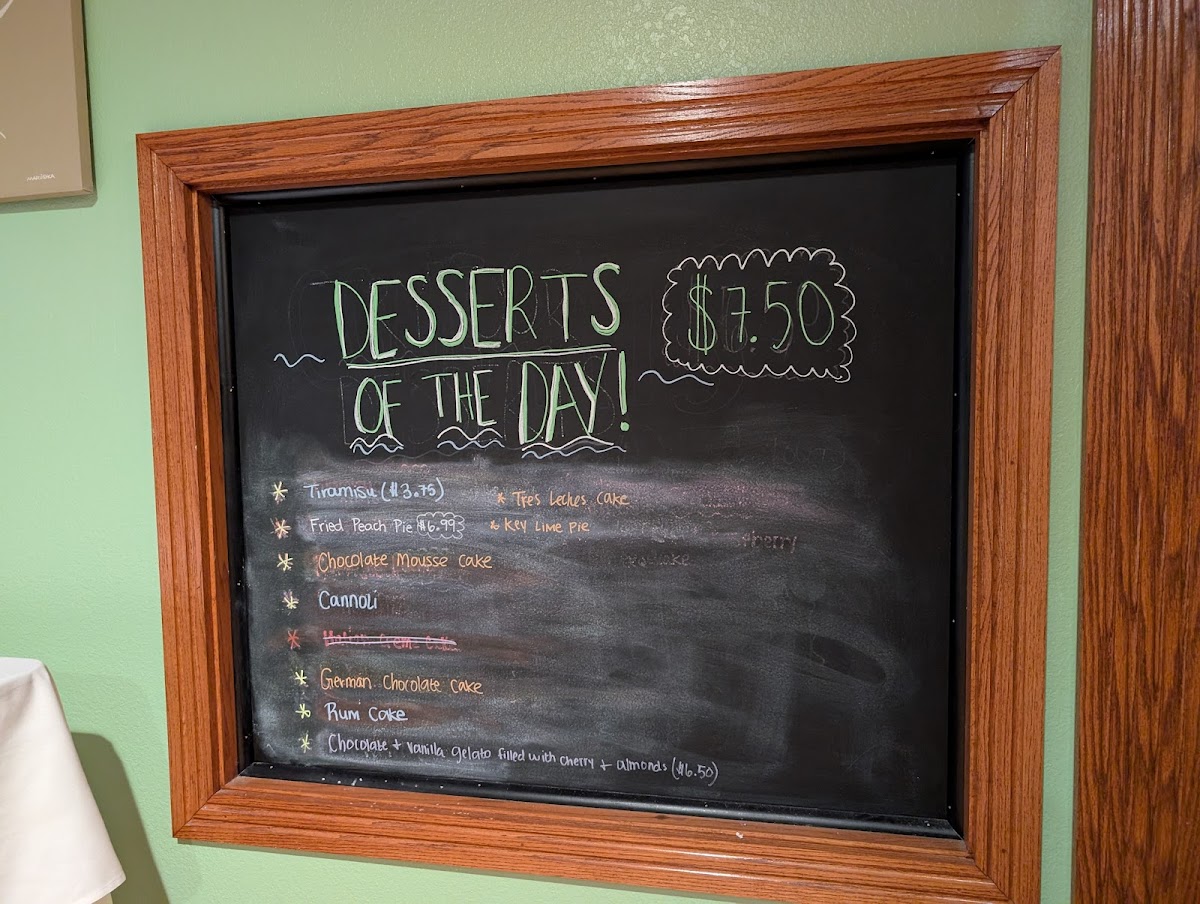 DESSERTS
OF THE DAY!
$7.50
* Tiramisu ($3.75)
* Fried Peach Pie $6.99
* Chocolate Mousse Cake
* Cannoli
* German Chocolate Cake
* Rum Cake
* Chocolate + vanilla gelato filled with cherry + almonds ($6.50)
* Tres Leches Cake
* Key Lime Pie